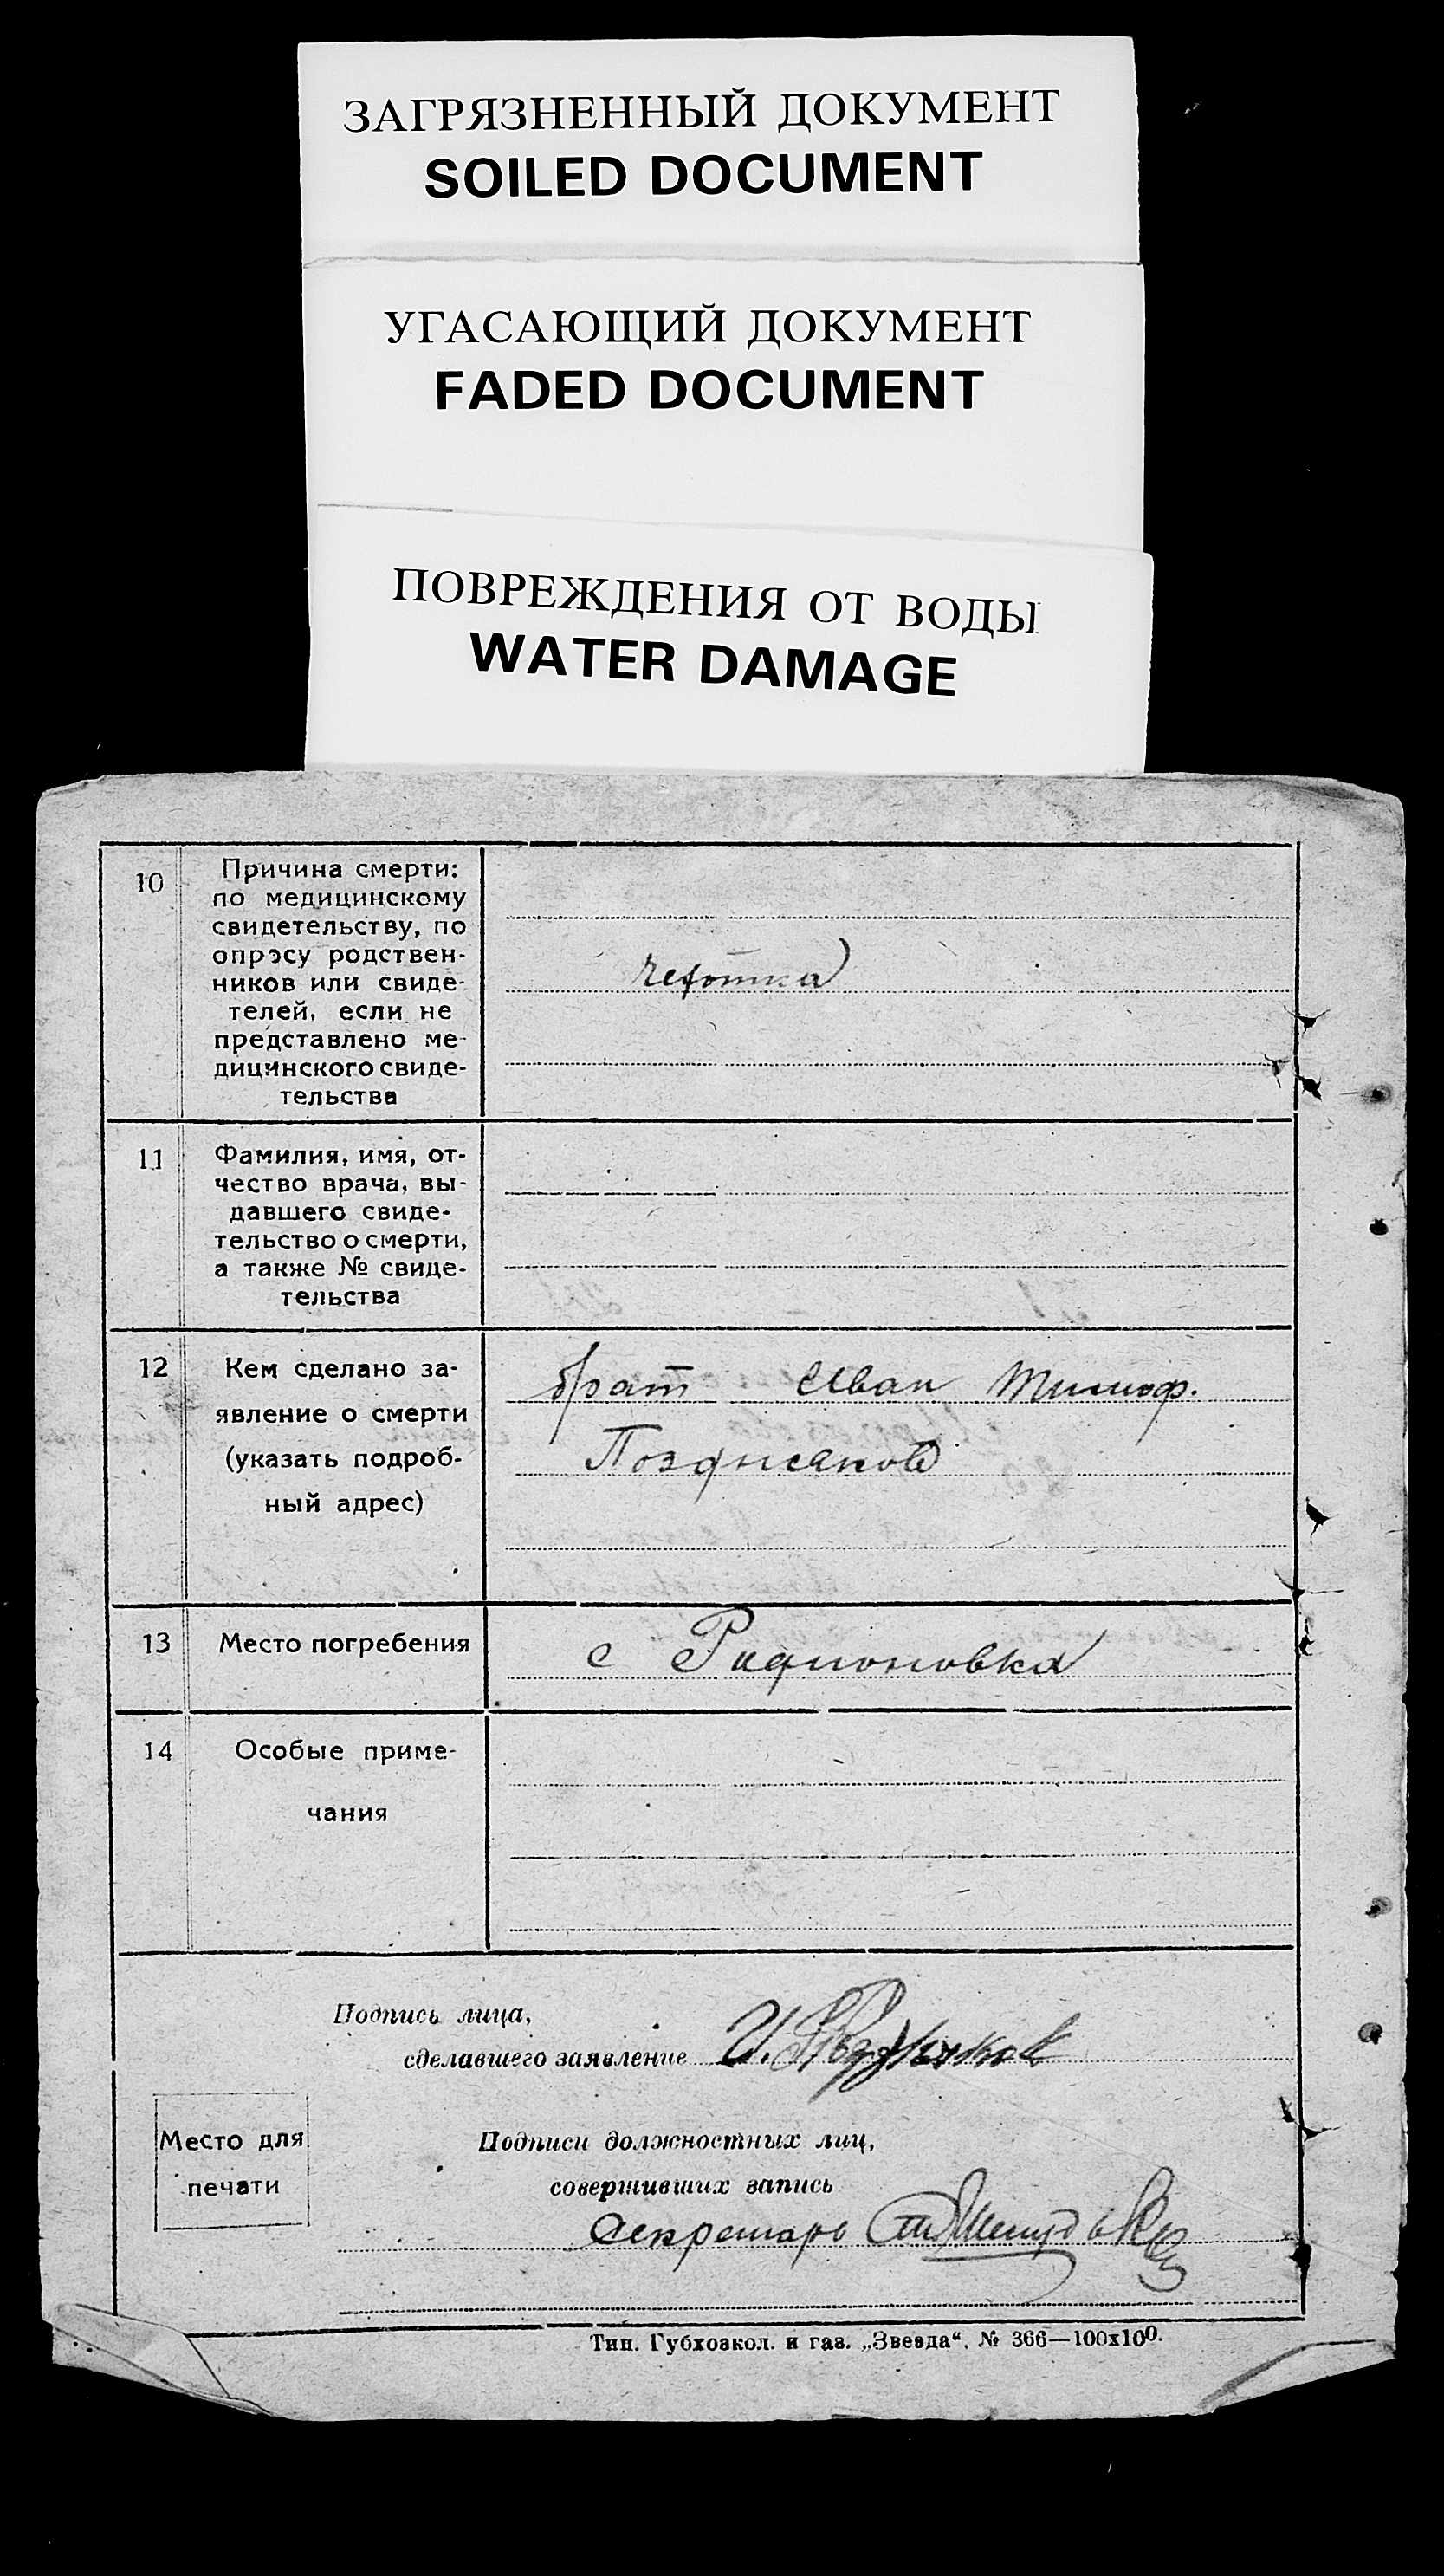 ЗАГРЯЗНЕННЫЙ ДОКУМЕНТ
SOILED DOCUMENT
УГАСАЮЩИЙ ДОКУМЕНТ
FADED DOCUMENT
ПОВРЕЖДЕНИЯ ОТ ВОДЫ
WATER DAMAGE
10
Причина смерти:
по медицинскому
свидетельству, по
опросу родствен-
ников или свиде-
телей, если не
представлено ме-
дицинского свиде-
тельства
чехотка
11
Фамилия, имя, от-
чество врача, вы-
давшего свиде-
тельство о смерти,
а также № свиде-
тельства
12
Кем сделано за-
явление о смерти
(указать подроб-
ный адрес)
брат Иван Тимоф.
Поздняков
13
Место погребения
с Родионовка
14
Особые приме-
чания
Подпись лица,
сделавшего заявление И. Поздняков
Место для
печати
Подписи должностных лиц,
совершивших запись
Секретарь
Тип. Губхозкол. и газ. „Звезда“. № 366—100х100.